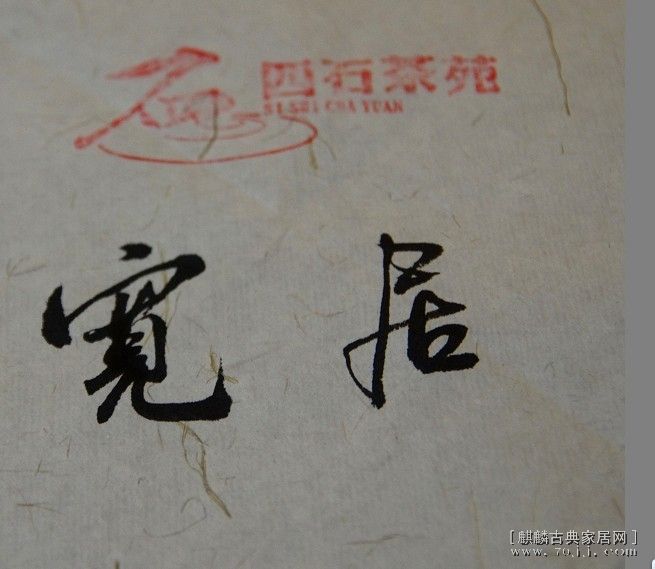 四石茶苑
SI SHI CHA YUAN
寬居
[麒麟古典家居网]
www.7qjj.com